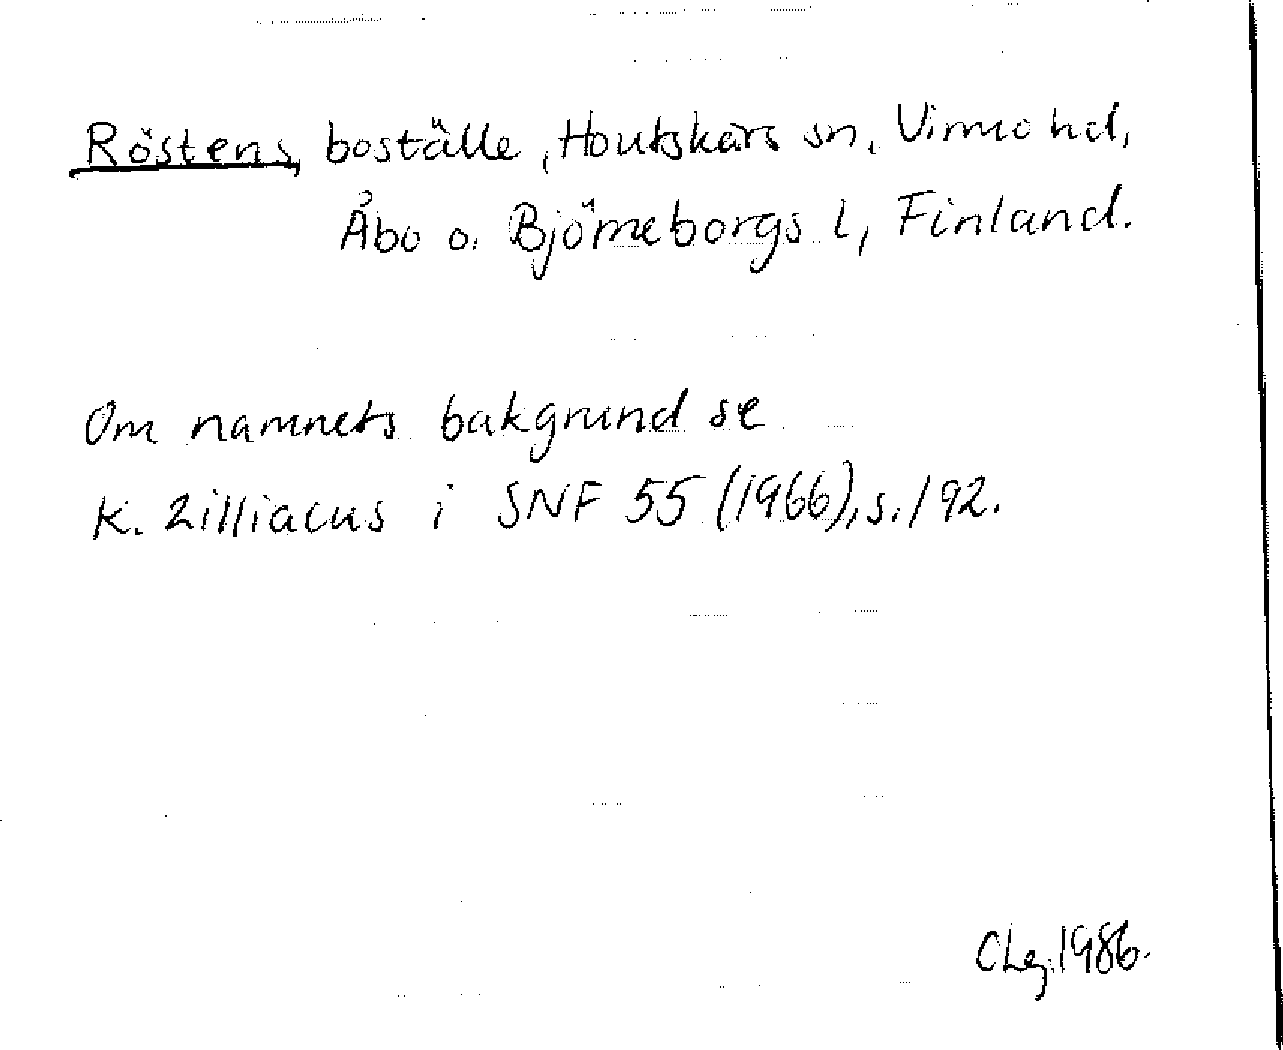 Röstens boställe, Houtskärs sn, Virmo hd,
Åbo o. Björneborgs l, Finland.
Om namnets bakgrund se
K. Zilliacus i SNF 55 (1966), s. 192.
CLg. 1986.